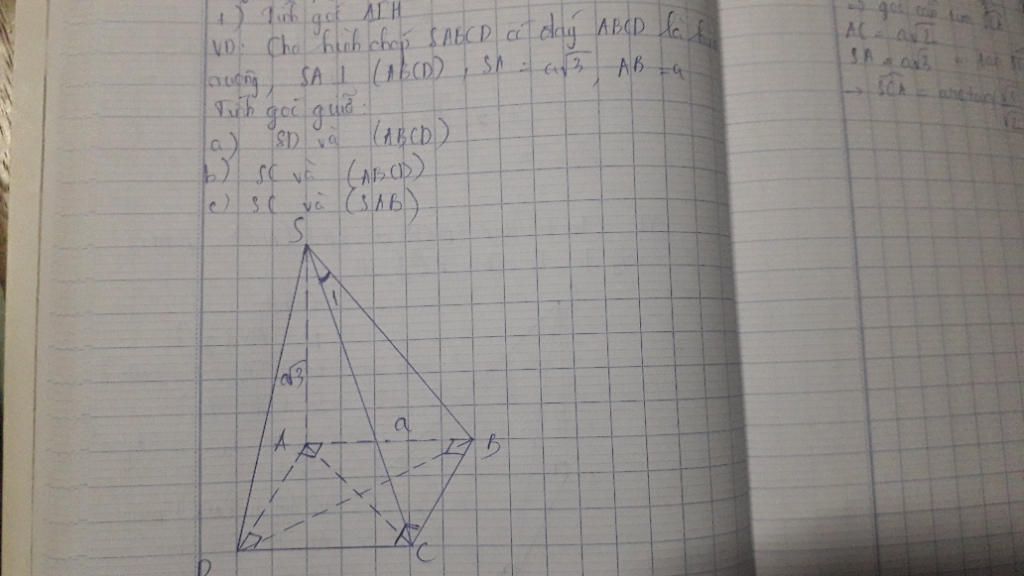 1) Tính góc
VD: Cho hình chóp SABCD có đáy ABCD là
vuông, SA ⊥ (ABCD), SA = a√3, AB = a
Tính góc giữa:
a) SD và (ABCD)
b) SC và (ABCD)
c) SC và (SAB)
S
a√3
A
a
B
D
C
→ góc
AC = a√2
SA = a√3
→ SCA =